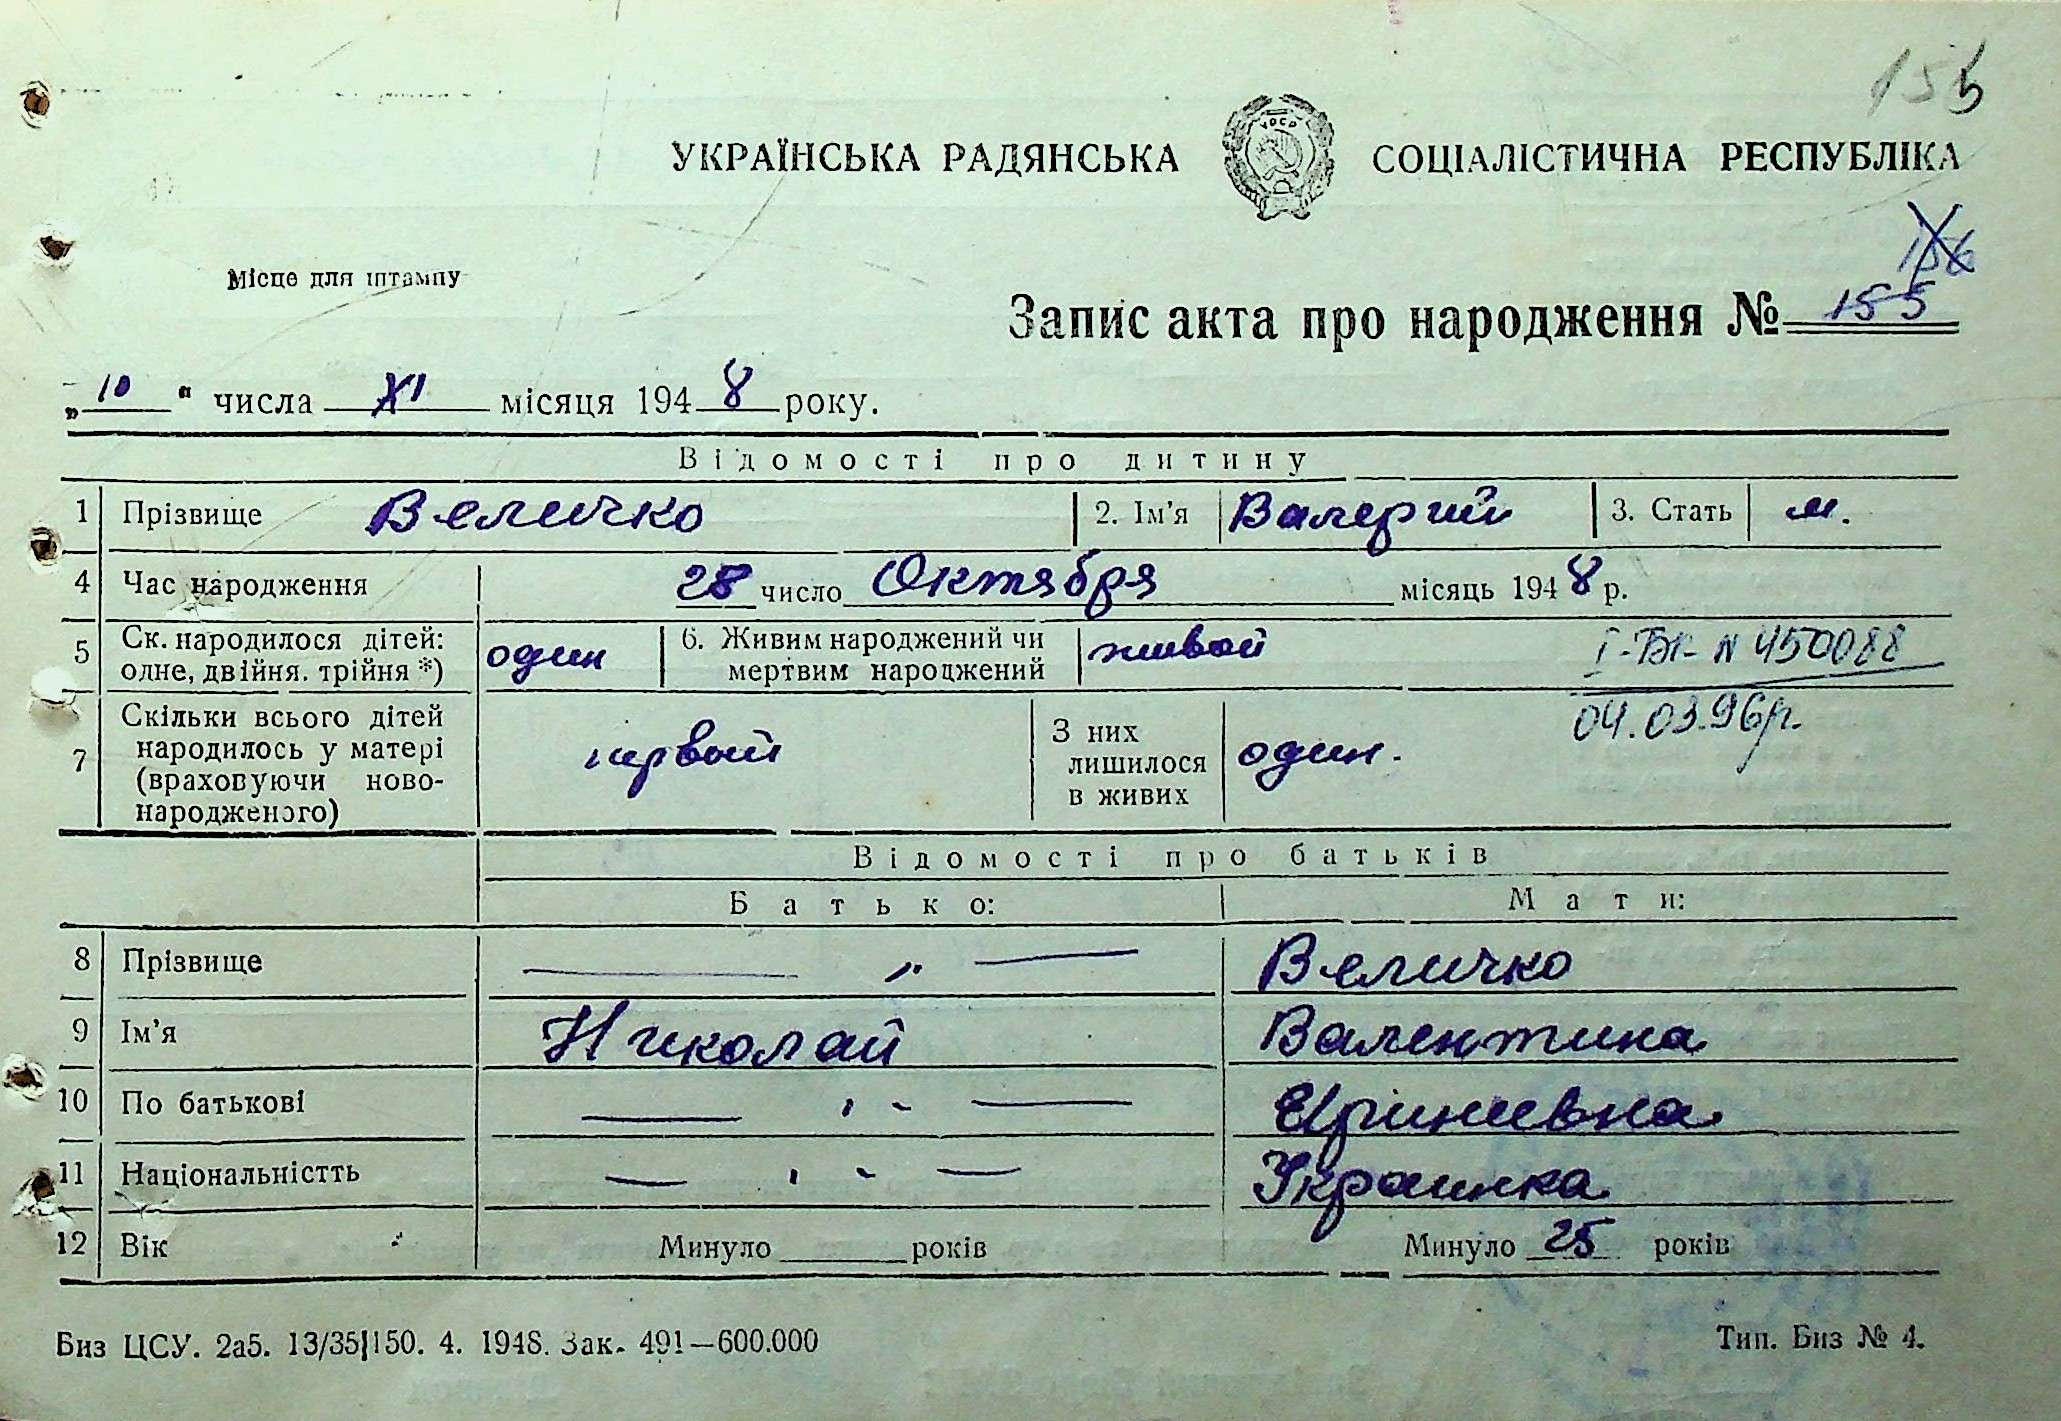 155
УКРАЇНСЬКА РАДЯНСЬКА СОЦІАЛІСТИЧНА РЕСПУБЛІКА
УОСР
156
Місце для штампу
Запис акта про народження № 155
„10“ числа XI місяця 1948 року.
Відомості про дитину
1 Прізвище Величко 2. Ім'я Валерий 3. Стать м.
4 Час народження 28 число Октября місяць 1948 р.
5 Ск. народилося дітей: один 6. Живим народжений чи живой I-БК N 450088
одне, двійня, трійня *) мертвим народжений
04.03.96р.
7 Скільки всього дітей народилось у матері (враховуючи ново-народженого) первый З них лишилося в живих один.
Відомості про батьків
Батько: Мати:
8 Прізвище — „ — Величко
9 Ім'я Николай Валентина
10 По батькові — „ —
11 Національністть — „ — Украинка
12 Вік Минуло років Минуло 25 років
Биз ЦСУ. 2а5. 13/35|150. 4. 1948. Зак. 491—600.000 Тип. Биз № 4.